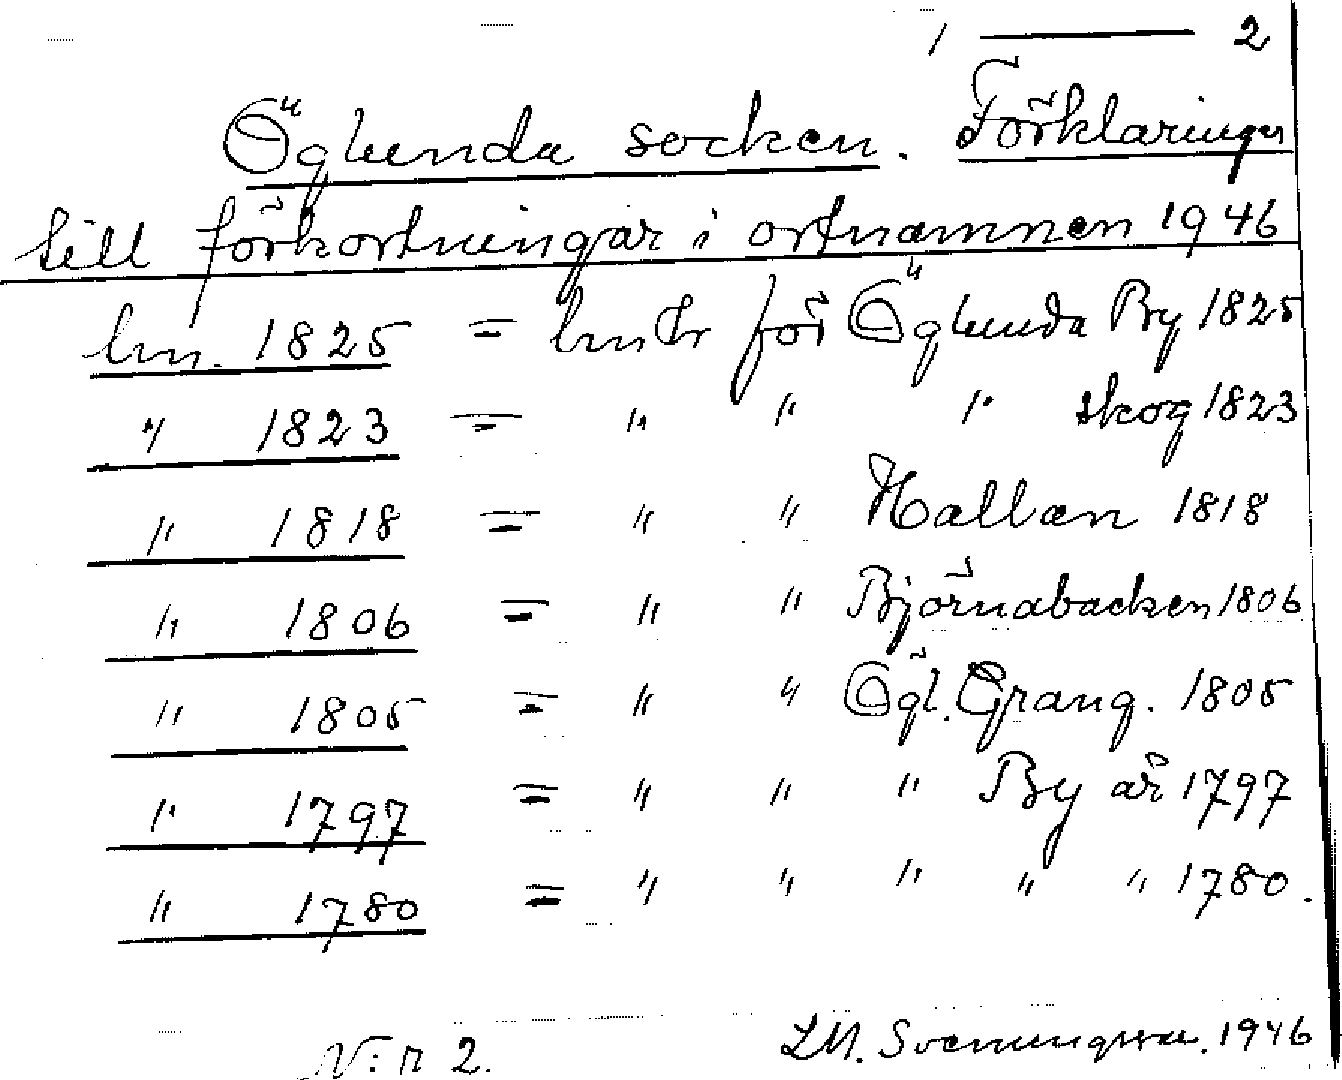 1 — 2
Öglunda socken. Förklaringer
till förkortningar i ortnamnen 1946
lm. 1825 = lmtr för Öglunda By 1825
" 1823 = " " " skog 1823
" 1818 = " " Hallan 1818
" 1806 = " " Björnabacken 1806
" 1805 = " " Ögl. Grang. 1805
" 1797 = " " " By år 1797
" 1780 = " " " " " 1780.
N:r 2. Svenungsson. 1946